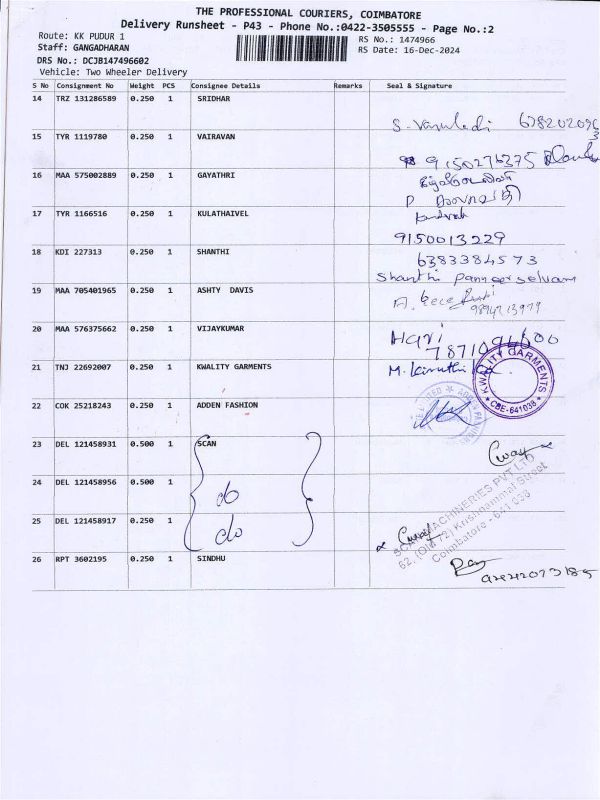 THE PROFESSIONAL COURIERS, COIMBATORE
Delivery Runsheet - P43 - Phone No.:0422-3505555 - Page No.:2
Route: KK PUDUR 1
RS No.: 1474966
Staff: GANGADHARAN
RS Date: 16-Dec-2024
DRS No.: DCJB147496602
Vehicle: Two Wheeler Delivery
S No Consignment No Weight PCS Consignee Details Remarks Seal & Signature
14 TRZ 131286589 0.250 1 SRIDHAR
15 TYR 1119780 0.250 1 VAIRAVAN
9150276375
16 MAA 575002889 0.250 1 GAYATHRI
17 TYR 1166516 0.250 1 KULATHAIVEL
9150013229
18 KDI 227313 0.250 1 SHANTHI
6383384573
Shanthi Panneerselvam
19 MAA 705401965 0.250 1 ASHTY DAVIS
20 MAA 576375662 0.250 1 VIJAYKUMAR
Hari
21 TNJ 22692007 0.250 1 KWALITY GARMENTS
KWALITY GARMENTS
CBE-641038
22 COK 25218243 0.250 1 ADDEN FASHION
23 DEL 121458931 0.500 1 SCAN
24 DEL 121458956 0.500 1
do
25 DEL 121458917 0.250 1
do
SCAN MACHINERIES PVT LTD
62, (Old 72) Krishnammal Street
Coimbatore - 641 038
26 RPT 3602195 0.250 1 SINDHU